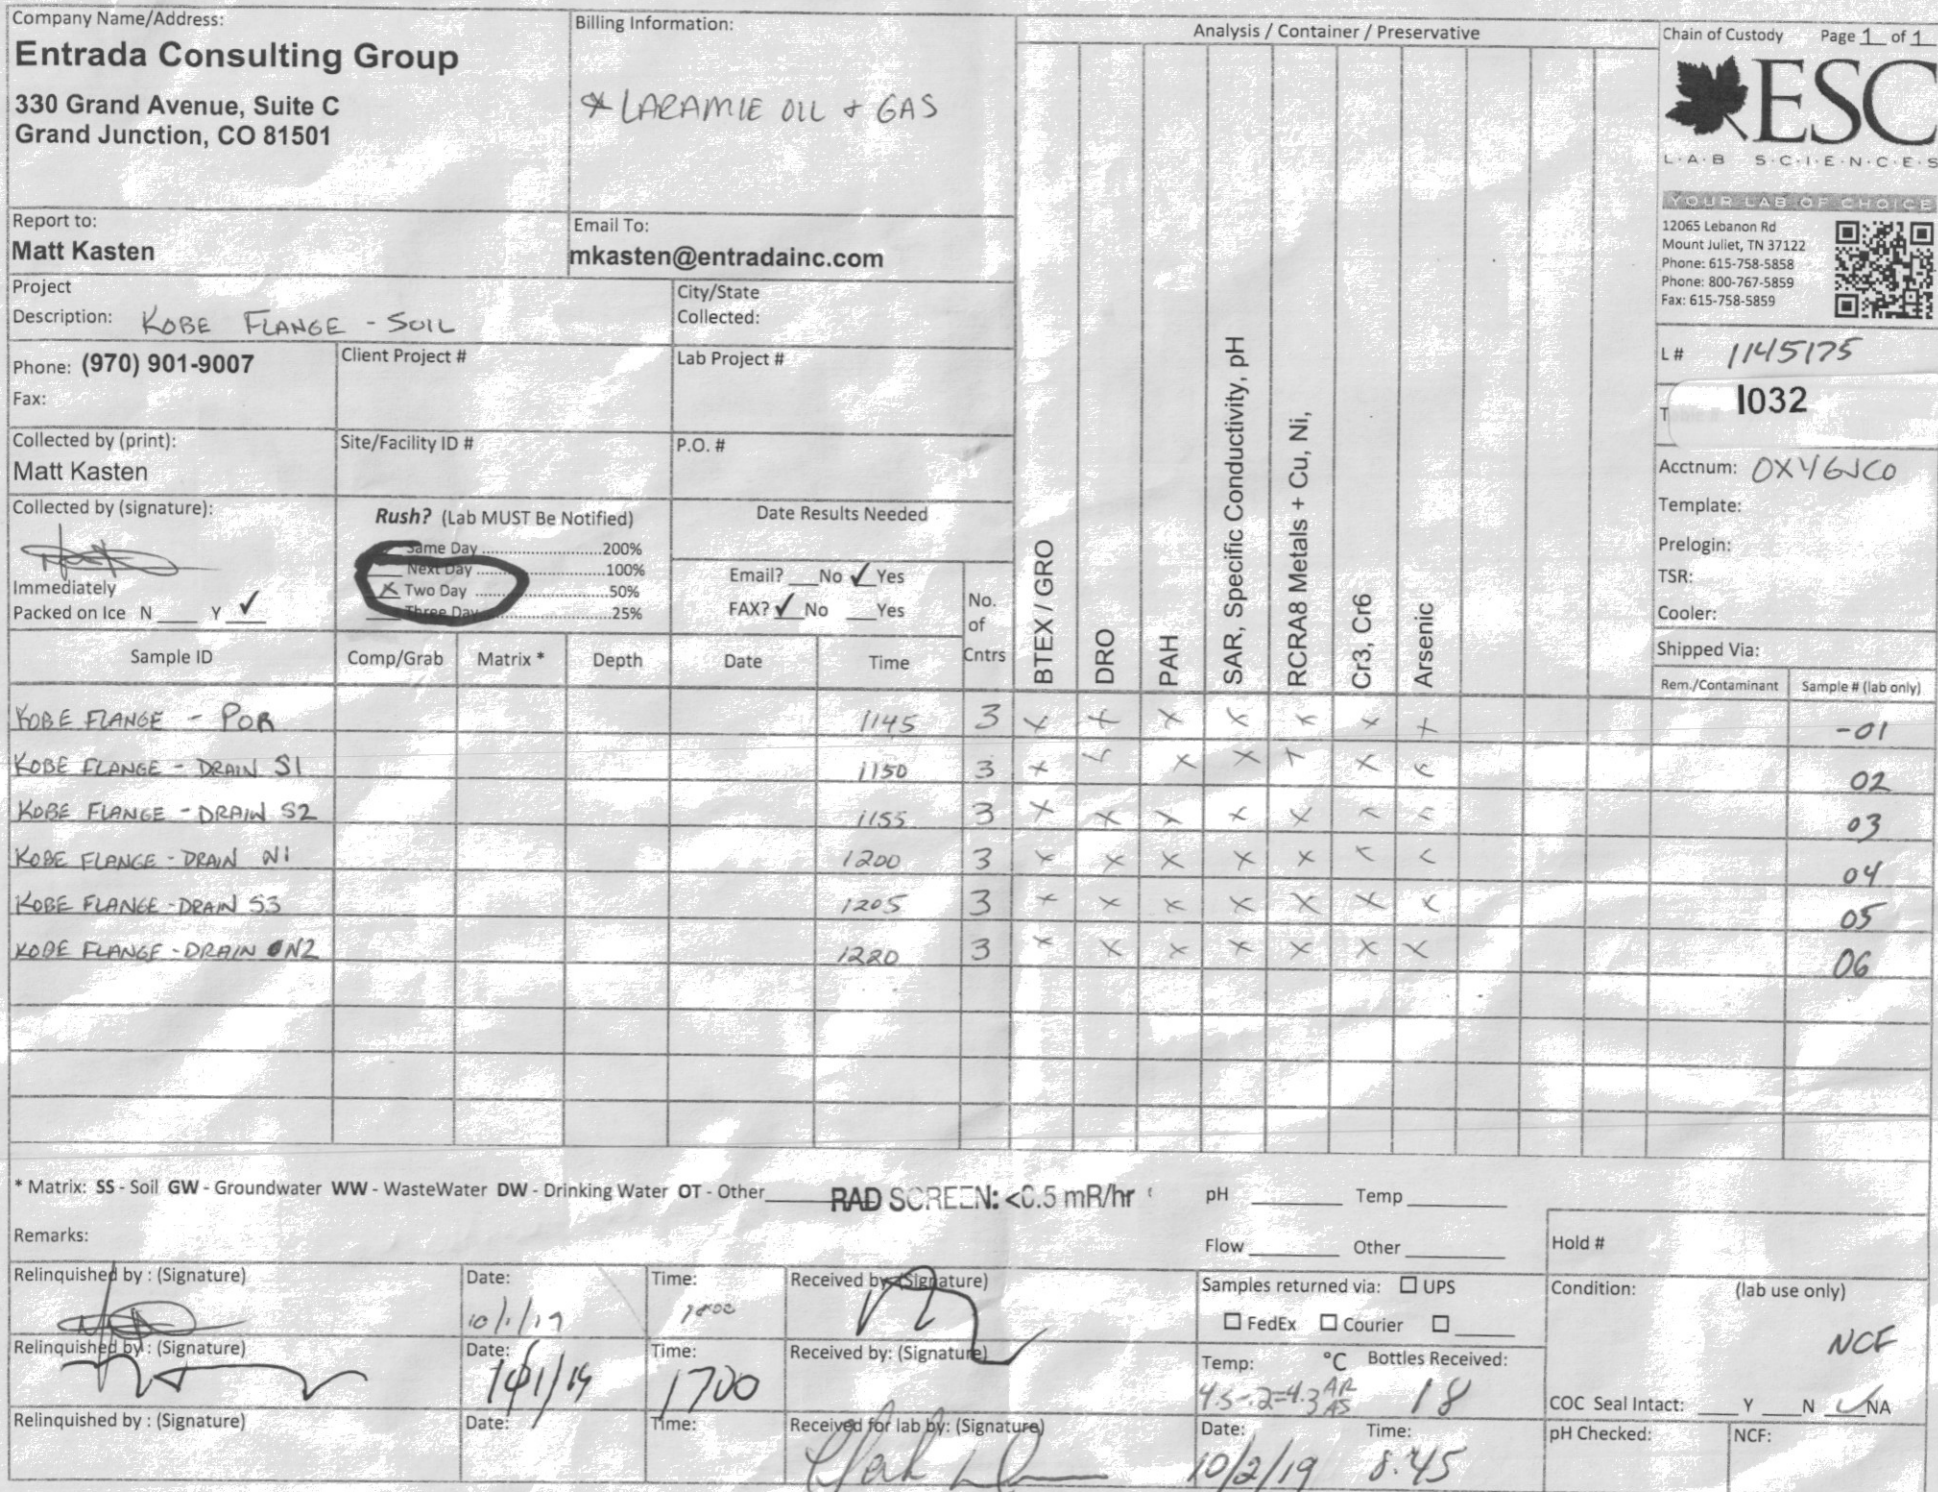 Company Name/Address:
Entrada Consulting Group
330 Grand Avenue, Suite C
Grand Junction, CO 81501
Billing Information:
* LARAMIE OIL + GAS
Analysis / Container / Preservative
Chain of Custody Page 1 of 1
ESC
L·A·B S·C·I·E·N·C·E·S
YOUR LAB OF CHOICE
12065 Lebanon Rd
Mount Juliet, TN 37122
Phone: 615-758-5858
Phone: 800-767-5859
Fax: 615-758-5859
Report to:
Matt Kasten
Email To:
mkasten@entradainc.com
Project
Description: KOBE FLANGE - SOIL
City/State
Collected:
Phone: (970) 901-9007
Fax:
Client Project #
Lab Project #
L# 1145175
I032
Collected by (print):
Matt Kasten
Site/Facility ID #
P.O. #
Acctnum: OXY6JCO
Template:
Prelogin:
TSR:
Cooler:
Shipped Via:
Collected by (signature):
Immediately
Packed on Ice N ___ Y ✓
Rush? (Lab MUST Be Notified)
Same Day ......................200%
Next Day ......................100%
X Two Day ......................50%
Three Day ......................25%
Date Results Needed
Email? __No ✓Yes
FAX? ✓No __Yes
No.
of
Cntrs
BTEX / GRO
DRO
PAH
SAR, Specific Conductivity, pH
RCRA8 Metals + Cu, Ni,
Cr3, Cr6
Arsenic
Sample ID Comp/Grab Matrix * Depth Date Time
Rem./Contaminant Sample # (lab only)
KOBE FLANGE - POR 1145 3 X X X X X X X -01
KOBE FLANGE - DRAIN S1 1150 3 X X X X X X X 02
KOBE FLANGE - DRAIN S2 1155 3 X X X X X X X 03
KOBE FLANGE - DRAIN N1 1200 3 X X X X X X X 04
KOBE FLANGE - DRAIN S3 1205 3 X X X X X X X 05
KOBE FLANGE - DRAIN N2 1220 3 X X X X X X X 06
* Matrix: SS - Soil GW - Groundwater WW - WasteWater DW - Drinking Water OT - Other
RAD SCREEN: <0.5 mR/hr
pH ______ Temp ______
Remarks:
Flow ______ Other ______
Hold #
Relinquished by : (Signature)
Date:
10/1/19
Time:
Received by: (Signature)
Samples returned via: ☐ UPS
☐ FedEx ☐ Courier ☐ ____
Condition: (lab use only)
NCF
Relinquished by : (Signature)
Date:
10/1/19
Time:
1700
Received by: (Signature)
Temp: °C Bottles Received:
4.5-.2=4.3 18
COC Seal Intact: ___Y ___N ✓NA
Relinquished by : (Signature)
Date:
Time:
Received for lab by: (Signature)
Date:
10/2/19
Time:
8:45
pH Checked:
NCF: